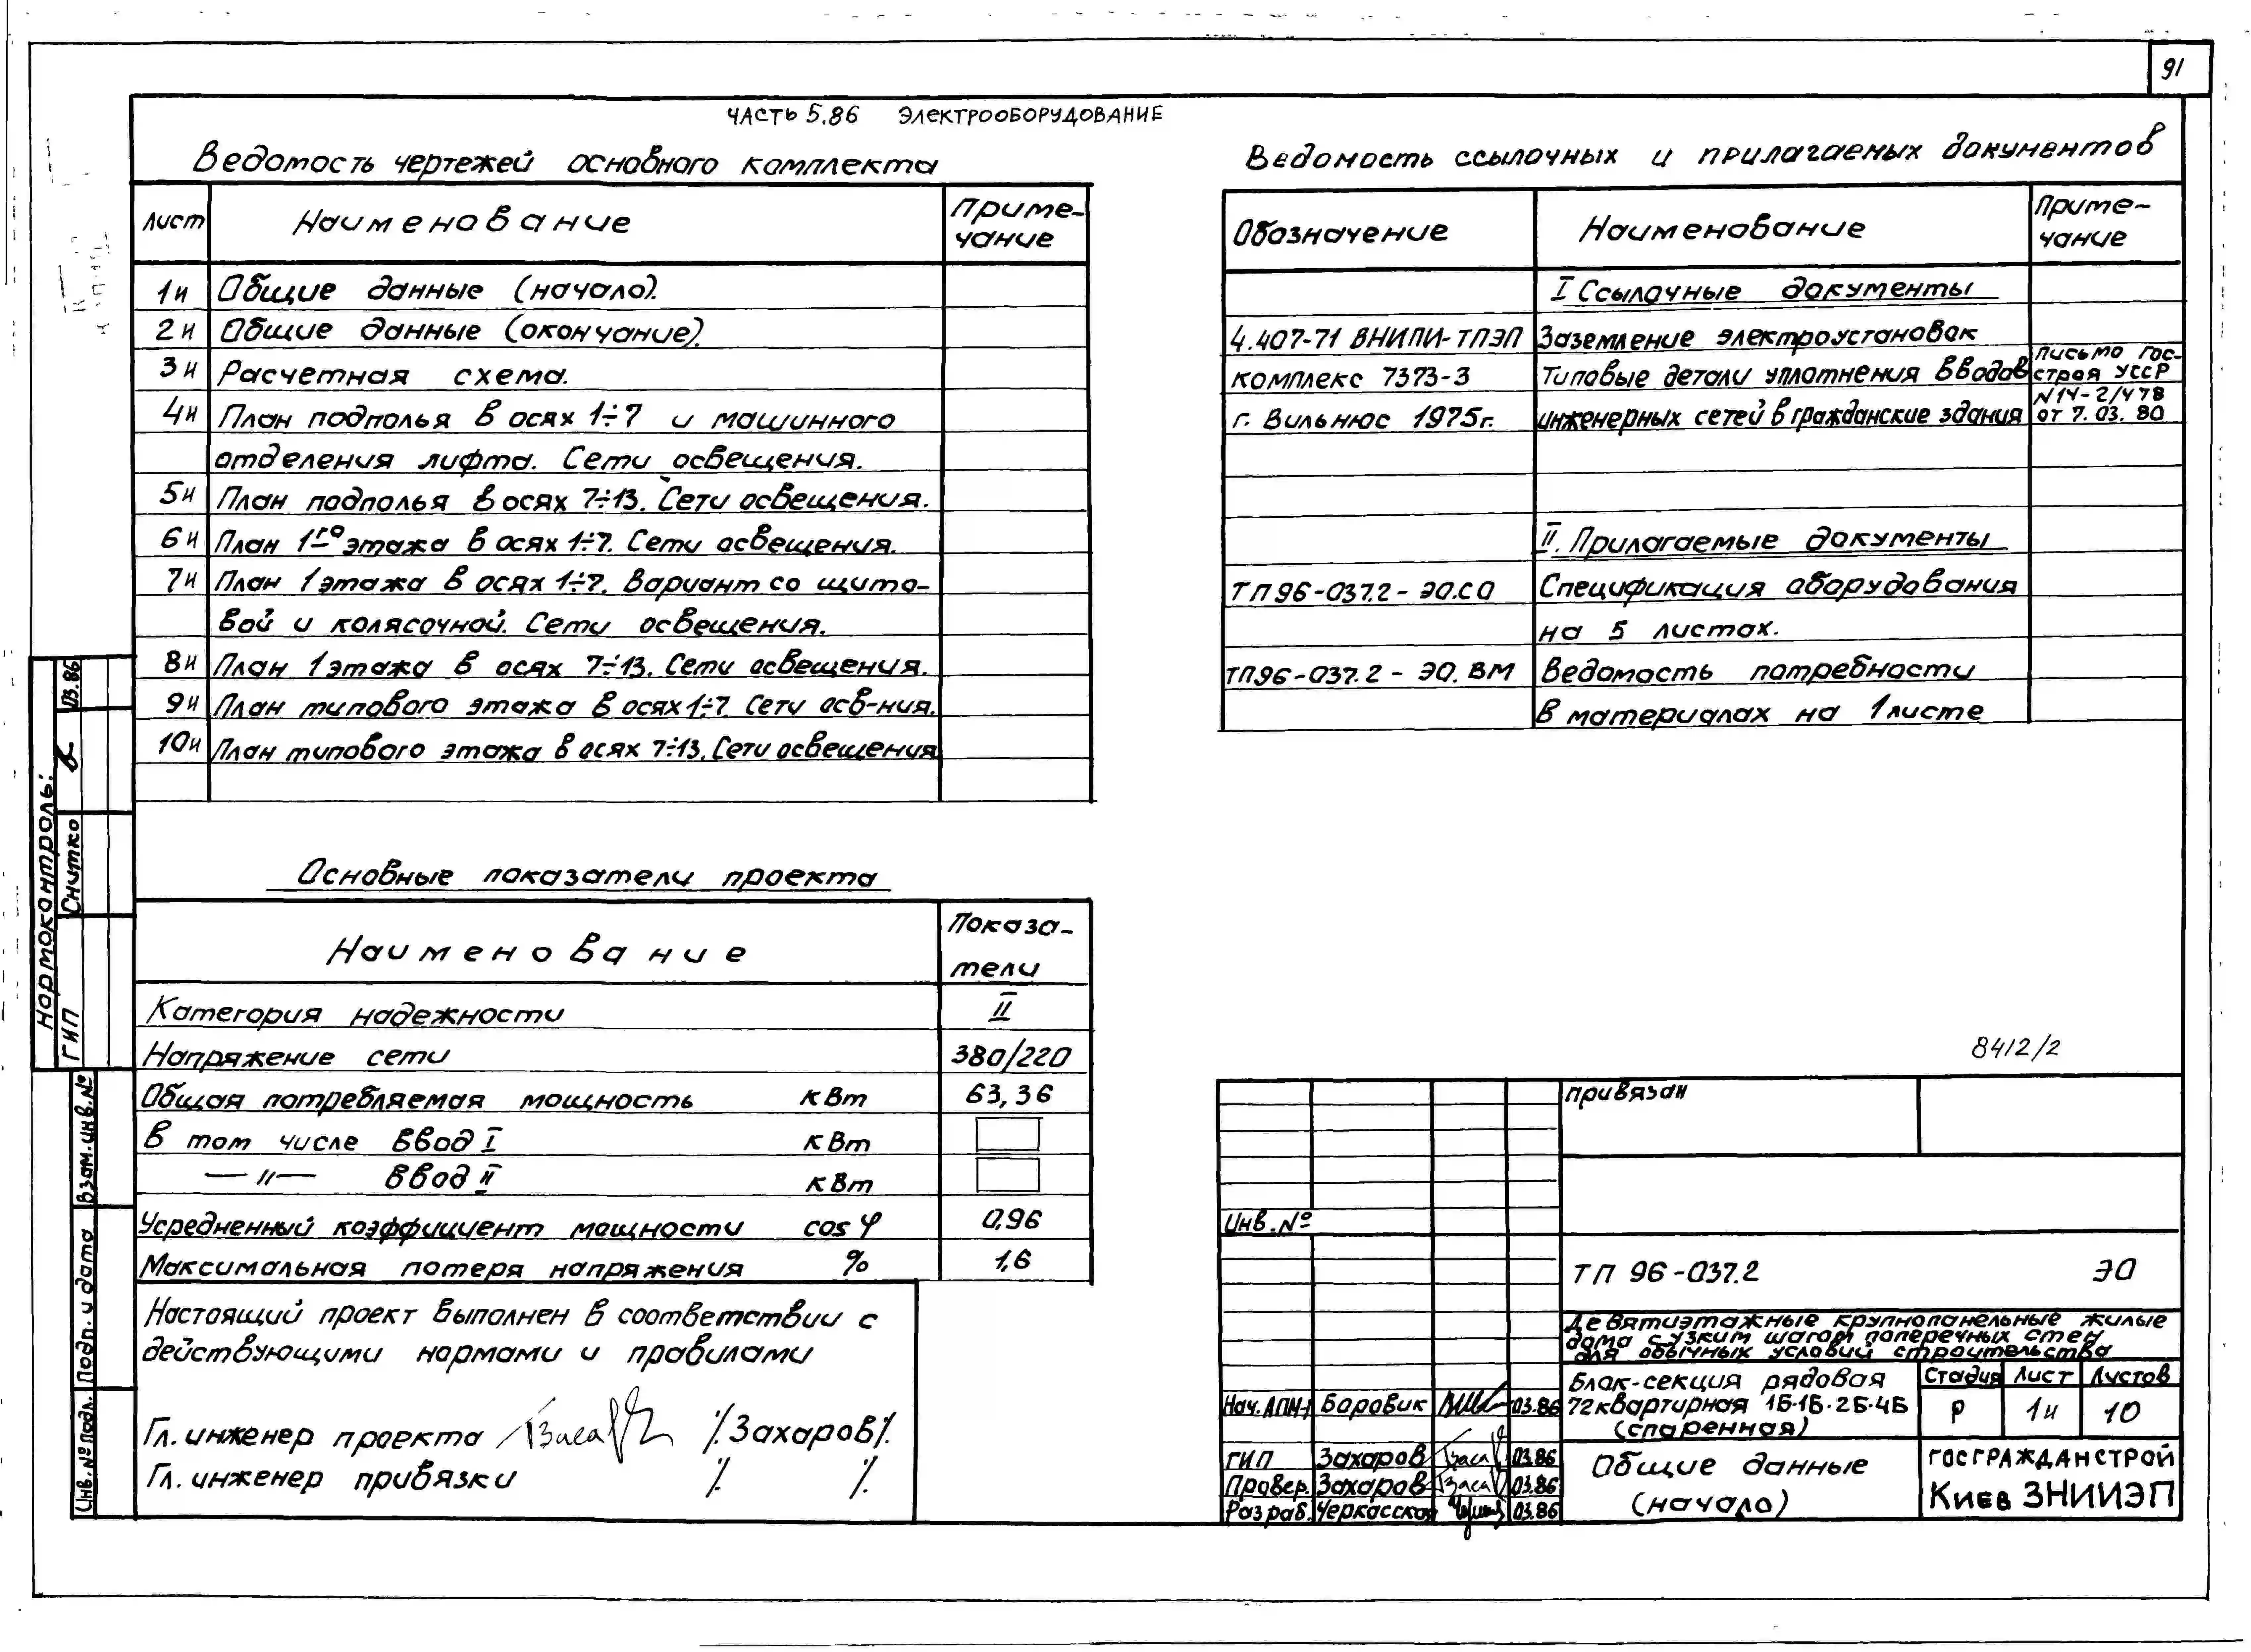 91
ЧАСТЬ 5.86 ЭЛЕКТРООБОРУДОВАНИЕ
Ведомость чертежей основного комплекта
Лист Наименование Приме-
чание
1и Общие данные (начало).
2и Общие данные (окончание).
3и Расчетная схема.
4и План подполья в осях 1÷7 и машинного
отделения лифта. Сети освещения.
5и План подполья в осях 7÷13. Сети освещения.
6и План 1го этажа в осях 1÷7. Сети освещения.
7и План 1 этажа в осях 1÷7. Вариант со щито-
вой и колясочной. Сети освещения.
8и План 1 этажа в осях 7÷13. Сети освещения.
9и План типового этажа в осях 1÷7. Сети осв-ния.
10и План типового этажа в осях 7÷13. Сети освещения
Ведомость ссылочных и прилагаемых документов
Обозначение Наименование Приме-
чание
I Ссылочные документы
4.407-71 ВНИПИ-ТПЭП Заземление электроустановок
комплекс 7373-3 Типовые детали уплотнения вводов
г. Вильнюс 1975г. инженерных сетей в гражданские здания
письмо Гос-
строя УССР
N14-2/478
от 7.03.80
II. Прилагаемые документы
ТП96-037.2-ЭО.СО Спецификация оборудования
на 5 листах.
ТП96-037.2-ЭО.ВМ Ведомость потребности
в материалах на 1 листе
Основные показатели проекта
Наименование Показа-
тели
Категория надежности II
Напряжение сети 380/220
Общая потребляемая мощность кВт 63,36
В том числе ввод I кВт
—〃— ввод II кВт
Усредненный коэффициент мощности cos φ 0,96
Максимальная потеря напряжения % 1,6
Настоящий проект выполнен в соответствии с
действующими нормами и правилами
Гл. инженер проекта /.Захаров/.
Гл. инженер привязки /. /.
Нормоконтроль:
ГИП Снитко 03.86
Взам.инв.№
Подп. и дата
Инв.№ подл.
8412/2
привязан
Инв.№
ТП 96-037.2 ЭО
Девятиэтажные крупнопанельные жилые
дома с узким шагом поперечных стен
для обычных условий строительства
Блок-секция рядовая
72 квартирная 1Б·1Б·2Б·4Б
(спаренная)
Стадия Лист Листов
Р 1и 10
Нач.АПМ-1 Боровик 03.86
ГИП Захаров 03.86
Провер. Захаров 03.86
Разраб. Черкасская 03.86
Общие данные
(начало)
ГОСГРАЖДАНСТРОЙ
КиевЗНИИЭП